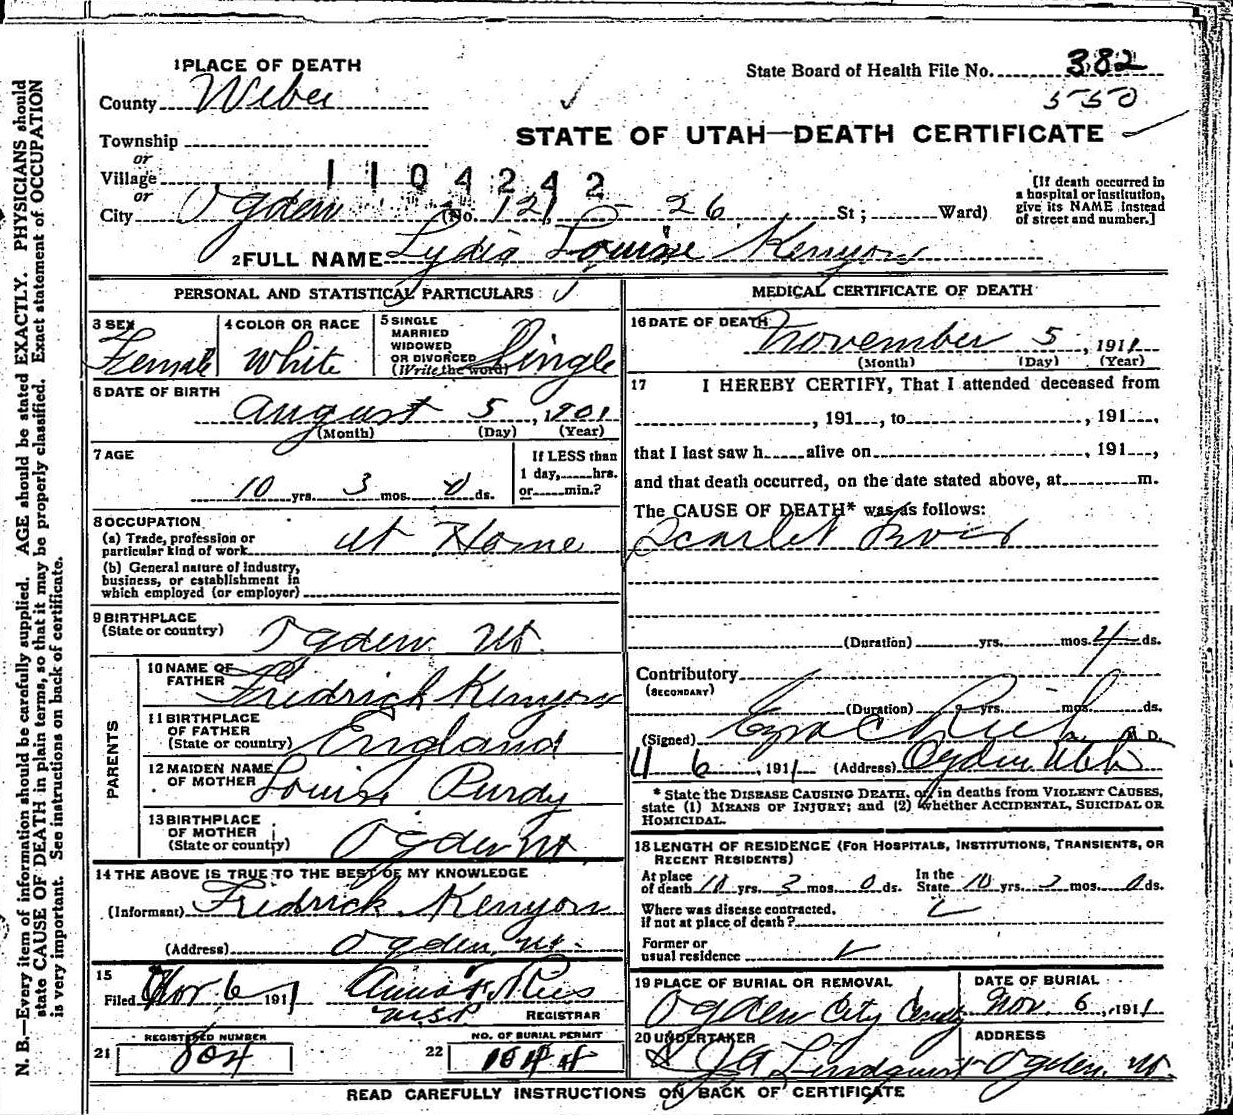 1 PLACE OF DEATH
State Board of Health File No. 382
County Weber
550
STATE OF UTAH—DEATH CERTIFICATE
Township
or
Village
1104242
or
City Ogden (No. 1215 - 26 St; Ward)
[If death occurred in a hospital or institution, give its NAME instead of street and number.]
2 FULL NAME Lydia Louise Kenyon
PERSONAL AND STATISTICAL PARTICULARS
3 SEX Female
4 COLOR OR RACE White
5 SINGLE MARRIED WIDOWED OR DIVORCED (Write the word) Single
6 DATE OF BIRTH August 5, 1901
(Month) (Day) (Year)
7 AGE 10 yrs. 3 mos. 0 ds.
If LESS than 1 day, hrs. or min.?
8 OCCUPATION
(a) Trade, profession or particular kind of work at Home
(b) General nature of Industry, business, or establishment in which employed (or employer)
9 BIRTHPLACE (State or country) Ogden Ut.
PARENTS
10 NAME OF FATHER Fredrick Kenyon
11 BIRTHPLACE OF FATHER (State or country) England
12 MAIDEN NAME OF MOTHER Louise Purdy
13 BIRTHPLACE OF MOTHER (State or country) Ogden Ut.
14 THE ABOVE IS TRUE TO THE BEST OF MY KNOWLEDGE
(Informant) Fredrick Kenyon
(Address) Ogden, Ut.
15 Filed Nov 6 1911
REGISTRAR
21 REGISTERED NUMBER 804
22 NO. OF BURIAL PERMIT 1044
MEDICAL CERTIFICATE OF DEATH
16 DATE OF DEATH November 5, 1911
(Month) (Day) (Year)
17 I HEREBY CERTIFY, That I attended deceased from
, 191 , to , 191 ,
that I last saw h alive on , 191 ,
and that death occurred, on the date stated above, at m.
The CAUSE OF DEATH* was as follows:
Scarlet Fever
(Duration) yrs. mos. 4 ds.
Contributory
(SECONDARY)
(Duration) yrs. mos. ds.
(Signed) Ezra C Rich M. D.
11 6, 1911 (Address) Ogden Utah
* State the DISEASE CAUSING DEATH, or, in deaths from VIOLENT CAUSES, state (1) MEANS OF INJURY; and (2) whether ACCIDENTAL, SUICIDAL OR HOMICIDAL.
18 LENGTH OF RESIDENCE (FOR HOSPITALS, INSTITUTIONS, TRANSIENTS, OR RECENT RESIDENTS)
At place of death 10 yrs. 3 mos. 0 ds. In the State 10 yrs. 3 mos. 0 ds.
Where was disease contracted, if not at place of death?
Former or usual residence
19 PLACE OF BURIAL OR REMOVAL Ogden City Cemty
DATE OF BURIAL Nov. 6, 1911
20 UNDERTAKER Lindquist
ADDRESS Ogden, Ut.
READ CAREFULLY INSTRUCTIONS ON BACK OF CERTIFICATE
N. B.—Every item of information should be carefully supplied. AGE should be stated EXACTLY. PHYSICIANS should
state CAUSE OF DEATH in plain terms, so that it may be properly classified. Exact statement of OCCUPATION
is very important. See instructions on back of certificate.